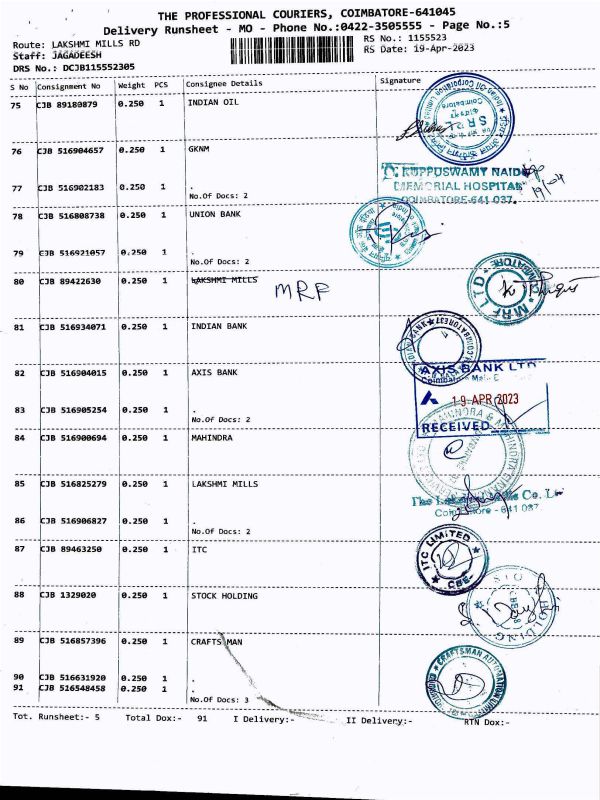 THE PROFESSIONAL COURIERS, COIMBATORE-641045
Delivery Runsheet - MO - Phone No.:0422-3505555 - Page No.:5
Route: LAKSHMI MILLS RD
RS No.: 1155523
Staff: JAGADEESH
RS Date: 19-Apr-2023
DRS No.: DCJB115552305
S No Consignment No Weight PCS Consignee Details Signature
75 CJB 89180879 0.250 1 INDIAN OIL
76 CJB 516904657 0.250 1 GKNM
KUPPUSWAMY NAIDU
MEMORIAL HOSPITAL
COIMBATORE-641 037.
19/04
77 CJB 516902183 0.250 1 .
No.Of Docs: 2
78 CJB 516808738 0.250 1 UNION BANK
79 CJB 516921057 0.250 1 .
No.Of Docs: 2
80 CJB 89422630 0.250 1 LAKSHMI MILLS
MRF
MRF LTD
COIMBATORE
81 CJB 516934071 0.250 1 INDIAN BANK
82 CJB 516904015 0.250 1 AXIS BANK
AXIS BANK LTD
19 APR 2023
RECEIVED
83 CJB 516905254 0.250 1 .
No.Of Docs: 2
84 CJB 516900694 0.250 1 MAHINDRA
85 CJB 516825279 0.250 1 LAKSHMI MILLS
86 CJB 516906827 0.250 1 .
No.Of Docs: 2
87 CJB 89463250 0.250 1 ITC
ITC LIMITED
CBE-
88 CJB 1329020 0.250 1 STOCK HOLDING
89 CJB 516857396 0.250 1 CRAFTS MAN
CRAFTSMAN AUTOMATION
90 CJB 516631920 0.250 1 .
91 CJB 516548458 0.250 1 .
No.Of Docs: 3
Tot. Runsheet:- 5 Total Dox:- 91 I Delivery:- II Delivery:- RTN Dox:-